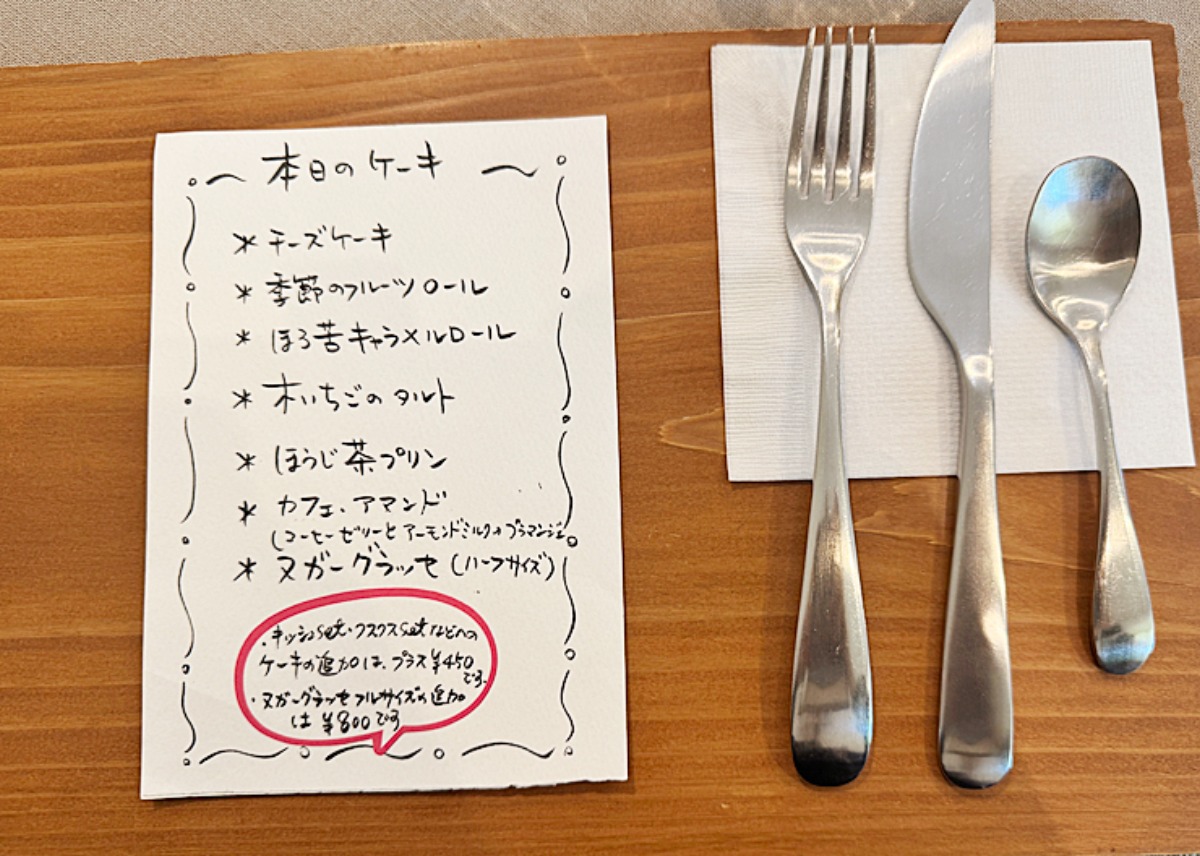 本日のケーキ
* チーズケーキ
* 季節のフルーツロール
* ほろ苦キャラメルロール
* 木いちごのタルト
* ほうじ茶プリン
* カフェ・アマンド
(コーヒーゼリーとアーモンドミルクのブラマンジェ
* ヌガーグラッセ(ハーフサイズ)
・キッシュset・クスクスsetなどへの
ケーキの追加は、プラス¥450
です。
・ヌガーグラッセフルサイズの追加
は ¥800です